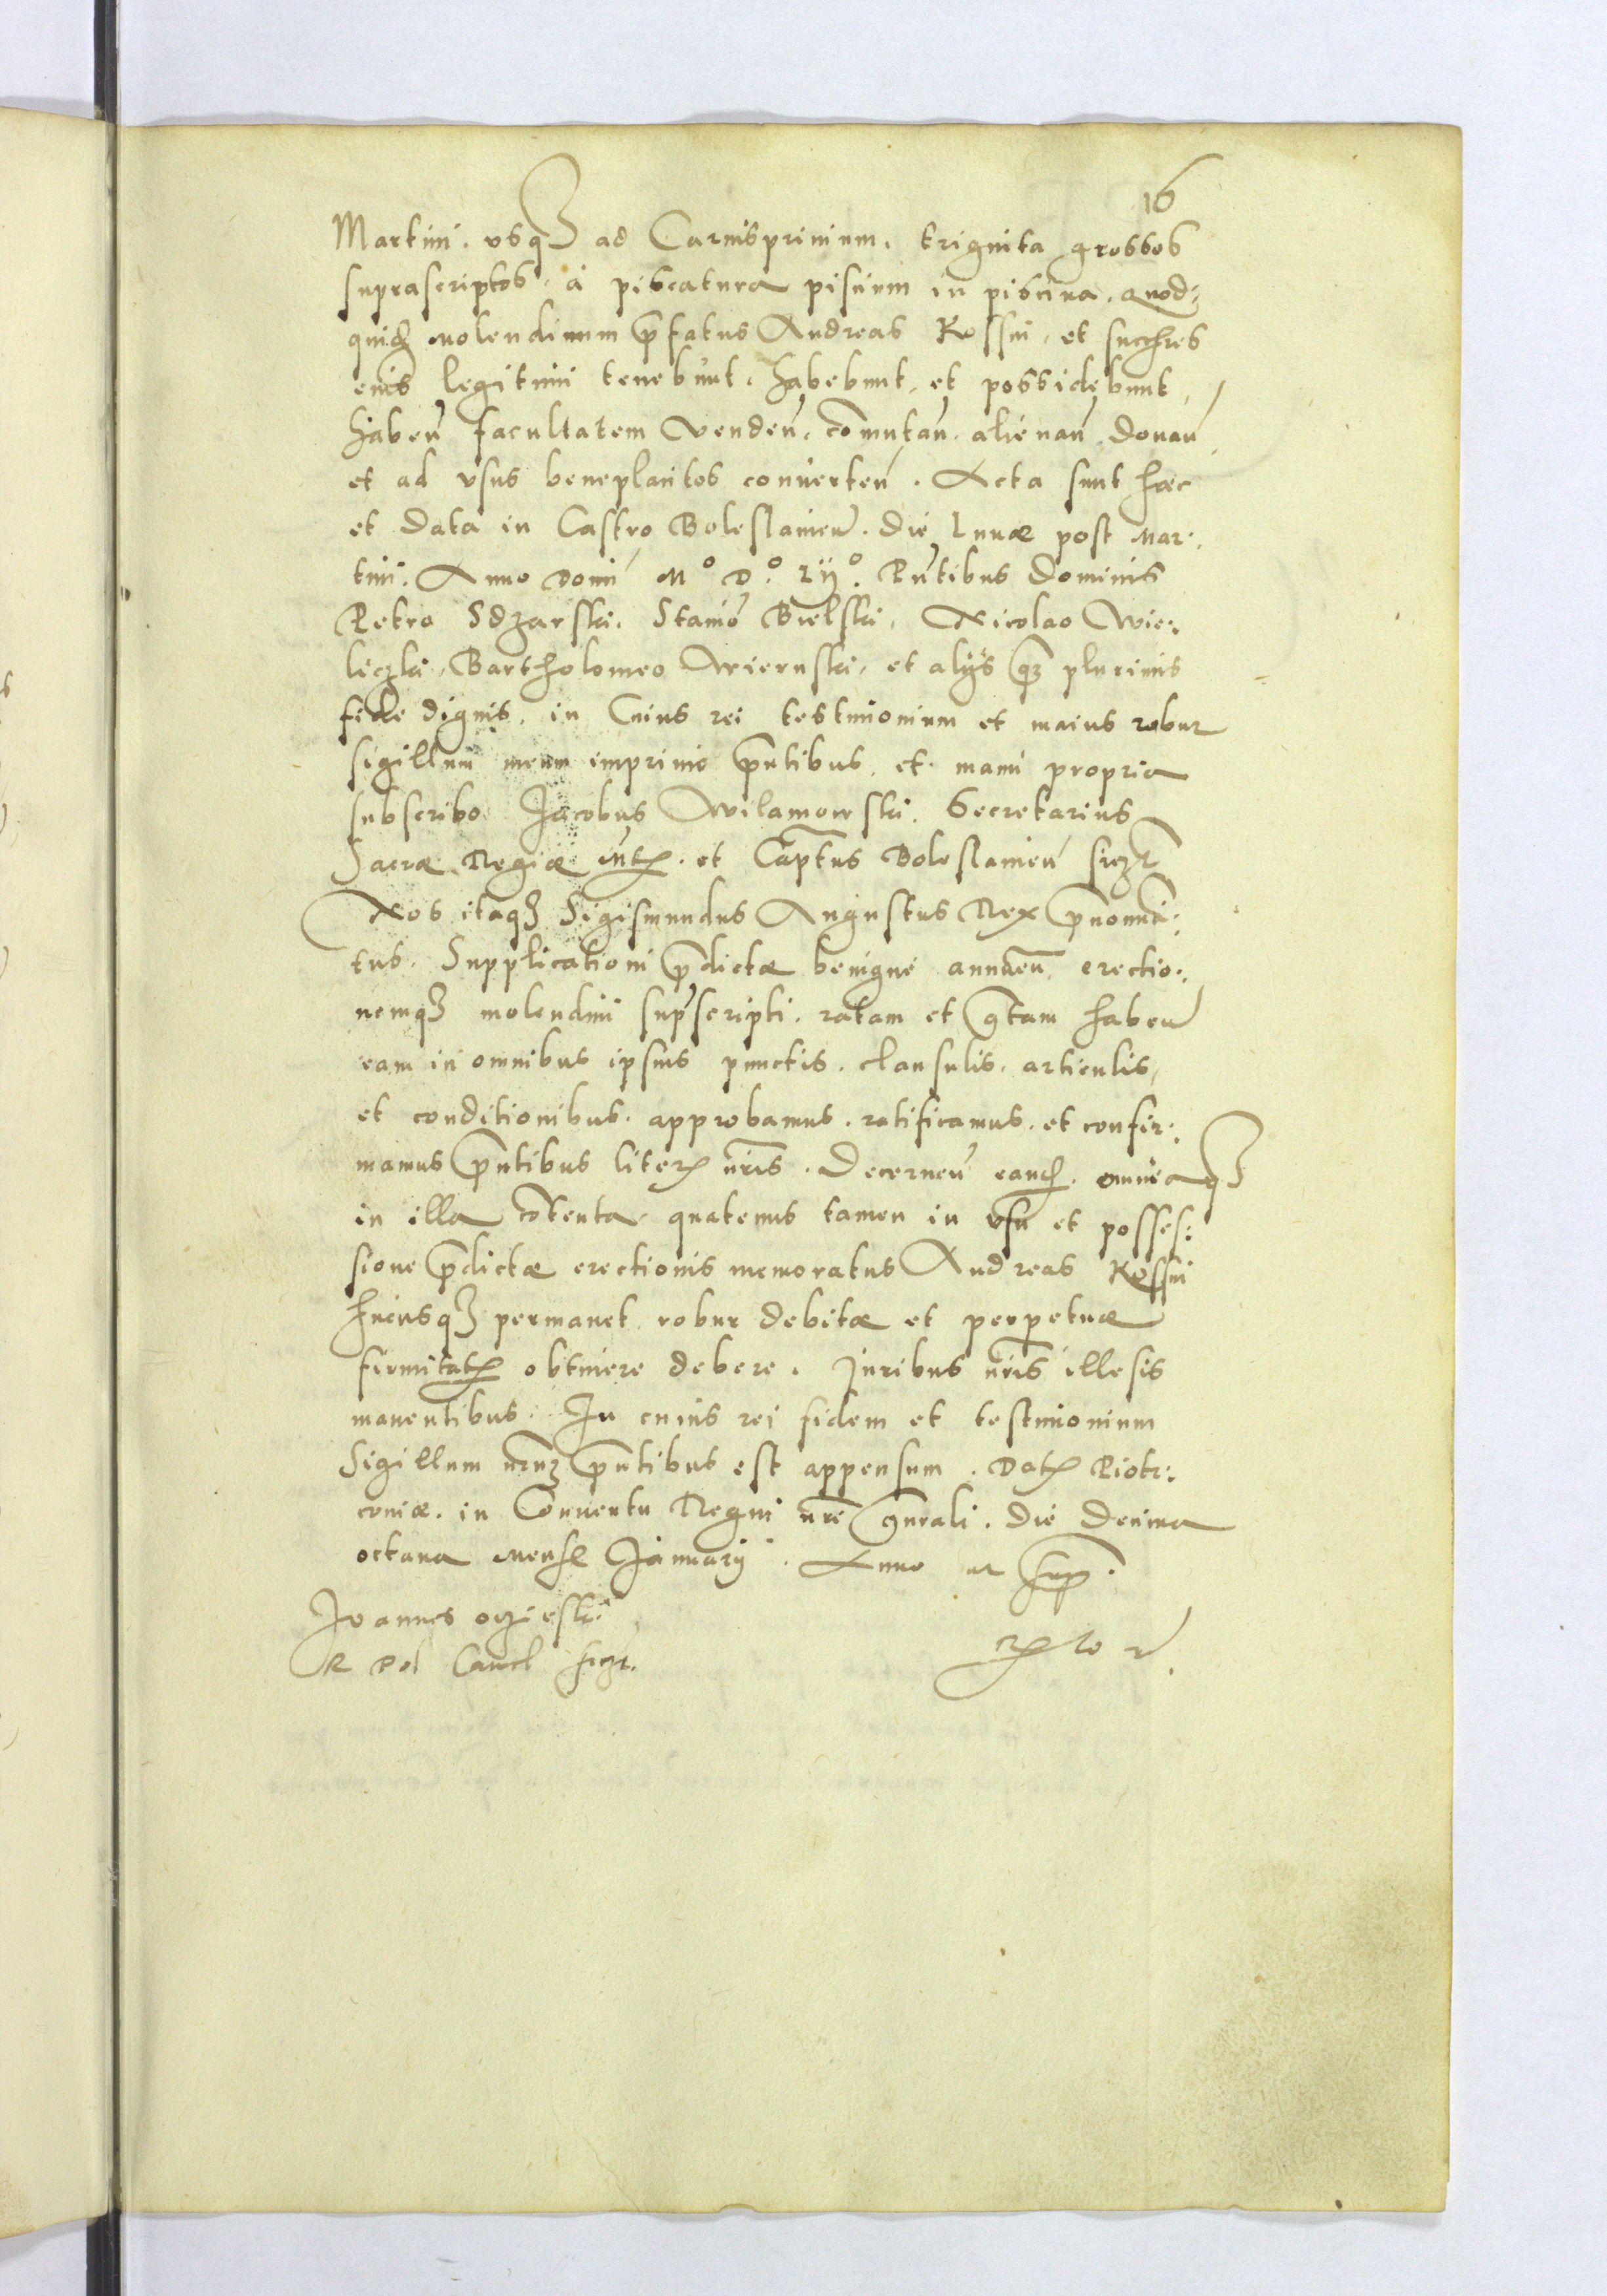 16
Martini. vsqȝ ad Carnispriuium. triginta grossos
suprascriptos. à piscatura pisciũm in piscina. quod:
quid molendinum p̄fatus Andreas Kossin. et succ̄res
eius legitimi tenebunt. habebunt. et possidebunt,
habeñ facultatem vendeñ. com̄utañ. alienañ. donañ
et ad vsus beneplacitos conuerteñ. Acta sunt haec
et data in Castro Boleslauieñ. die Lunæ post Mar:
tini. Anno Domi M° D°. Lij°. P̄ntibus dominis
Petro Sdzarski. Stanis̄ Bielski. Nicolao Wie:
liczki. Bartholomeo Wiernski. et alijs q̄ȝ plurimis
fide dignis. in Cuius rei testimonium et maius robur
sigillum meum imprimo p̄ntibus. et manu propria
subscribo Jacobus Wilamowski. Secretarius
Sacræ Regiæ Mtꝭ. et Capt̄us Boleslauieñ sczt̄
Nos itaqȝ Sigismundus Augustus Rex p̄nomina:
tus. Supplicationi p̄dictæ benigne annueñ erectio:
nemqȝ molendini sup̄scripti. ratam et gtam habeñ
eam in omnibus ipsius punctis. clausulis. articulis,
et conditionibus. approbamus. ratificamus. et confir:
mamus p̄ntibus literꝭ nr̄is. Decerneñ eand. omniaqȝ
in illa cōtenta quatenus tamen in vsu et posses:
sione p̄dictæ erectionis memoratus Andreas Kossin
hucusqȝ permanet robur debitæ et perpetuæ
firmitatꝭ obtinere debere. Juribus nr̄is illesis
manentibus. In cuius rei fidem et testimonium
Sigillum nr̄uȝ p̄ntibus est appensum. Datꝭ Piotr:
coniæ. in Conuentu Regni nr̄i gn̄rali. die decima
octaua Mense Januarij. Anno ut sup̄.
Joannes oczieski
R Pol Cancl sczt.